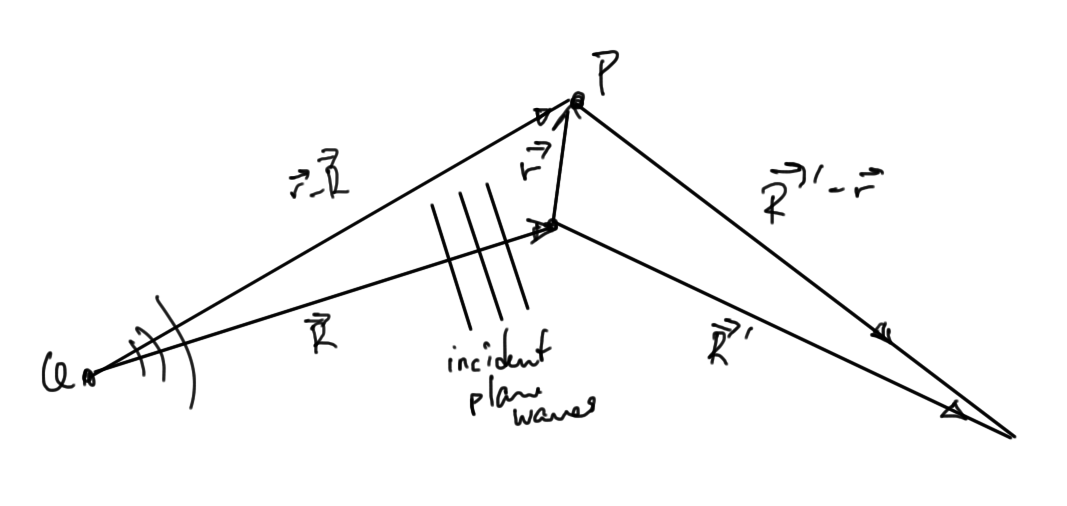 P⃗
r⃗
r⃗-R⃗
R⃗'-r⃗
R⃗
R⃗'
Q
incident
plane
waves